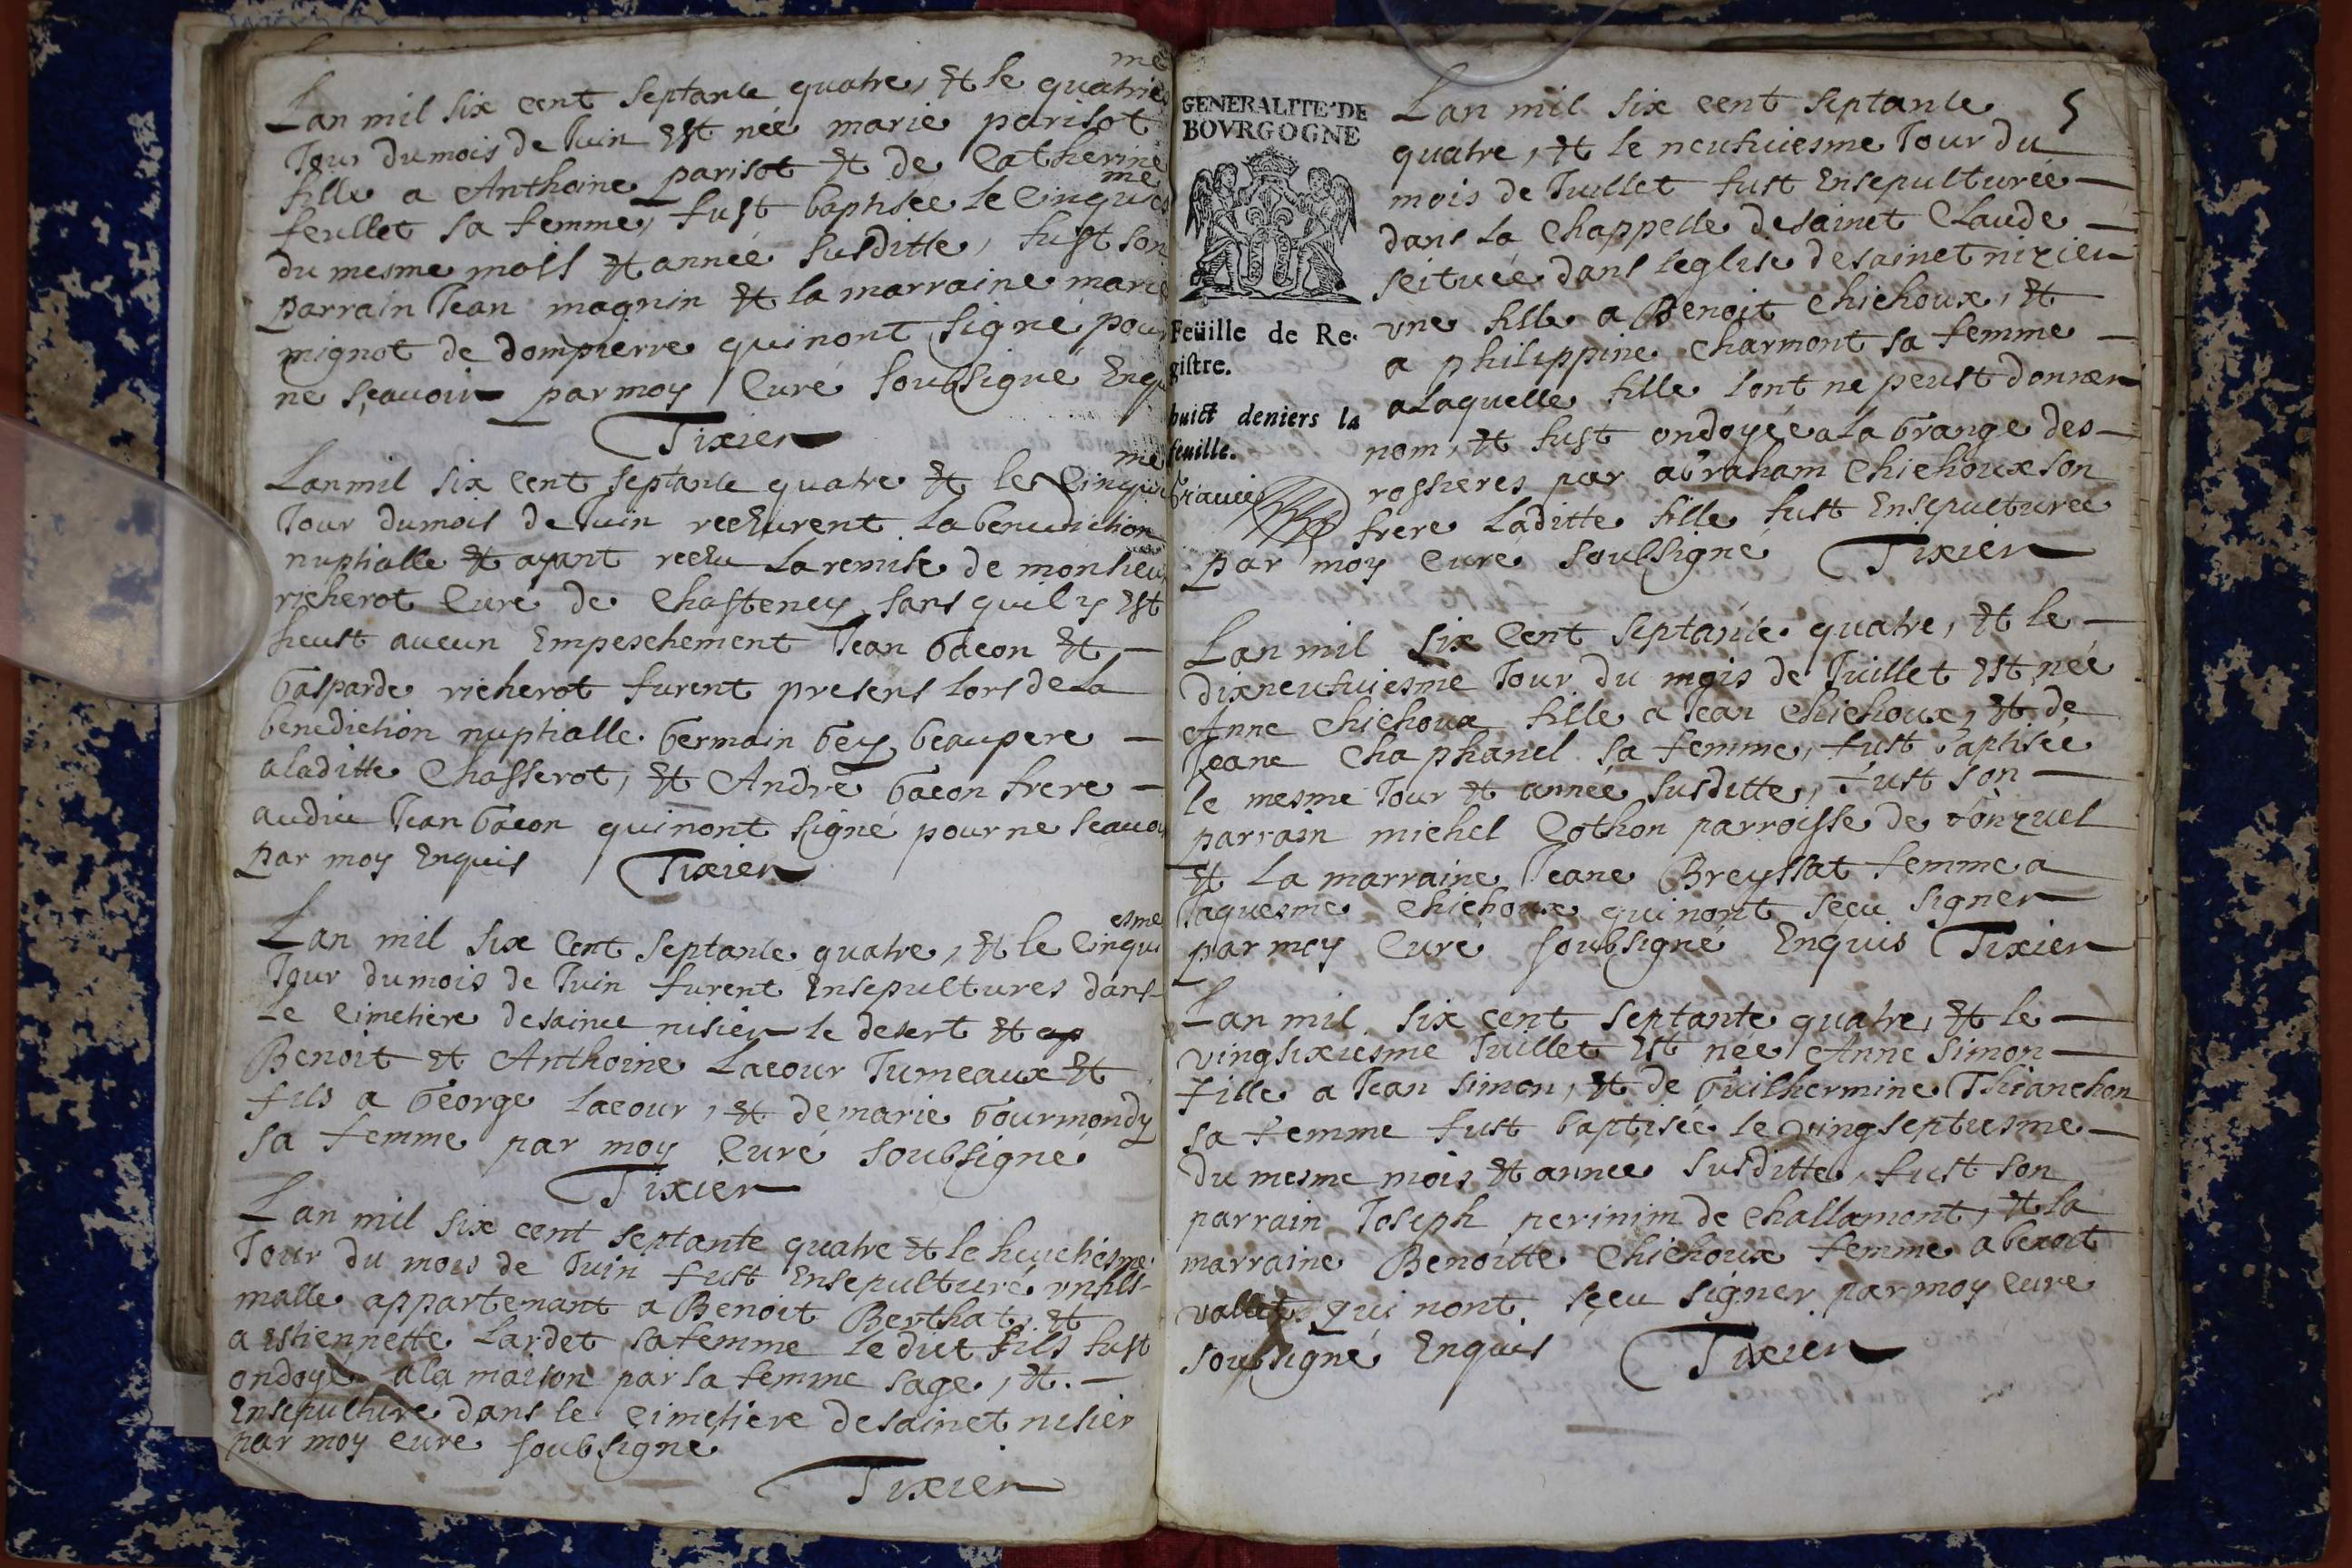 Lan mil six cent septante quatre, et le quatrie
me
Jour du mois de Juin est née marie parisot
fille a Anthoine parisot et de Catherine
feullet sa femme, fust baptisée le Cinquies
me
du mesme mois et année susditte, fust son
parrain Jean magnin et la marraine marie
mignot de dompierre qui nont signé pour
ne sçauoir par moy Curé soubsigné Enquis
Tixier
Lan mil six Cent septante quatre et le Cinquie
me
Jour du mois de Juin receurent La benediction
nuptialle et ayant receu La remise de monsieur
richerot Curé de Chasteney sans quil y est
heust aucun Empeschement Jean bacon et
Gasparde richerot furent presens lors de La
benediction nuptialle. Germain Gey beaupere
a laditte Chasserot, et André bacon frere
audict Jean bacon qui nont signé pour ne scauoir
par moy Enquis Tixier
Lan mil six Cent septante quatre, et le Cinqui
esme
Jour du mois de Juin furent Ensepultures dans
Le Cimetiere de sainct nisier le desert et
Benoit et Anthoine Lacour Jumeaux et
fils a George Lacour, et de marie Gourmondy
sa femme par moy Curé soubsigné
Tixier
Lan mil six cent septante quatre et le huictiesme
Jour du mois de Juin fust Ensepulturé vn fils
malle appartenant a Benoit Berthat, et
a Estiennette Lardet sa femme ledict fils fust
ondoyé a la maison par la femme sage, et
Ensepulturé dans le Cimetiere de sainct nisier
par moy Curé soubsigné
Tixier
5
GENERALITE' DE
BOVRGOGNE
Feüille de Re-
gistre.
huict deniers la
feuille.
Lan mil six cent septante
quatre, et le neufuiesme Jour du
mois de Juillet fust Ensepulturée
dans La Chappelle de sainct Claude
scituée dans leglise de sainct nizier
vne fille a Benoit Chichoux, et
a philippine Charmont sa femme
a Laquelle fille lont ne peust donner
nom, et fust ondoyée a la Grange des
rossieres par abraham Chichoux son
frere Laditte fille fust Ensepulturée
par moy Curé soubsigné Tixier
Lan mil six Cent septante quatre, et le
dixneufuiesme Jour du mois de Juillet est née
Anne Chichoux fille a Jean Chichoux, et de
Jeane Chaphanel sa femme, fust baptisée
le mesme Jour et année susditte, fust son
parrain michel Cothon parroisse de ronzuel
et La marraine Jeane Breyssat femme a
Jaquesme Chichoux qui nont sçeu signer
par moy Curé soubsigné Enquis Tixier
Lan mil six cent septante quatre, et le
vingsixiesme Juillet est née Anne Simon
fille a Jean Simon, et de Guilhermine Thianchon
sa femme fust baptisée le vingseptiesme
du mesme mois et année susditte, fust son
parrain Joseph perinim de Challamont, et la
marraine Benoitte Chichoux femme a benoit
vallet qui nont sçeu signer par moy Cure
soubsigné Enquis Tixier